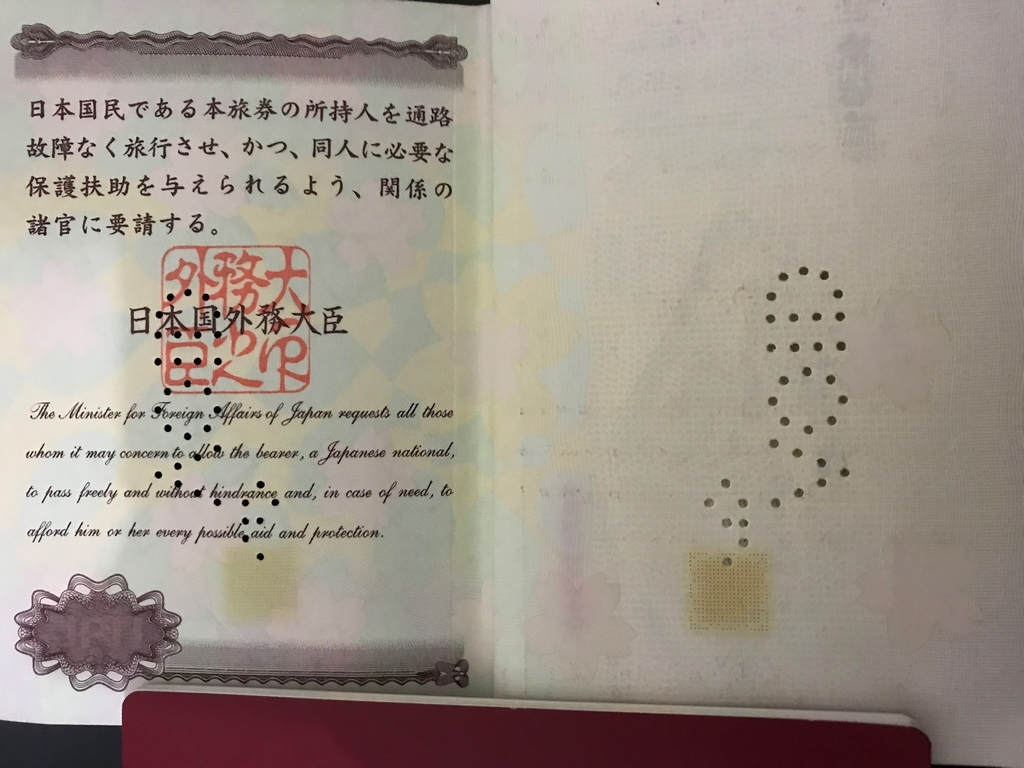 日本国民である本旅券の所持人を通路
故障なく旅行させ、かつ、同人に必要な
保護扶助を与えられるよう、関係の
諸官に要請する。
日本国外務大臣
The Minister for Foreign Affairs of Japan requests all those
whom it may concern to allow the bearer, a Japanese national,
to pass freely and without hindrance and, in case of need, to
afford him or her every possible aid and protection.